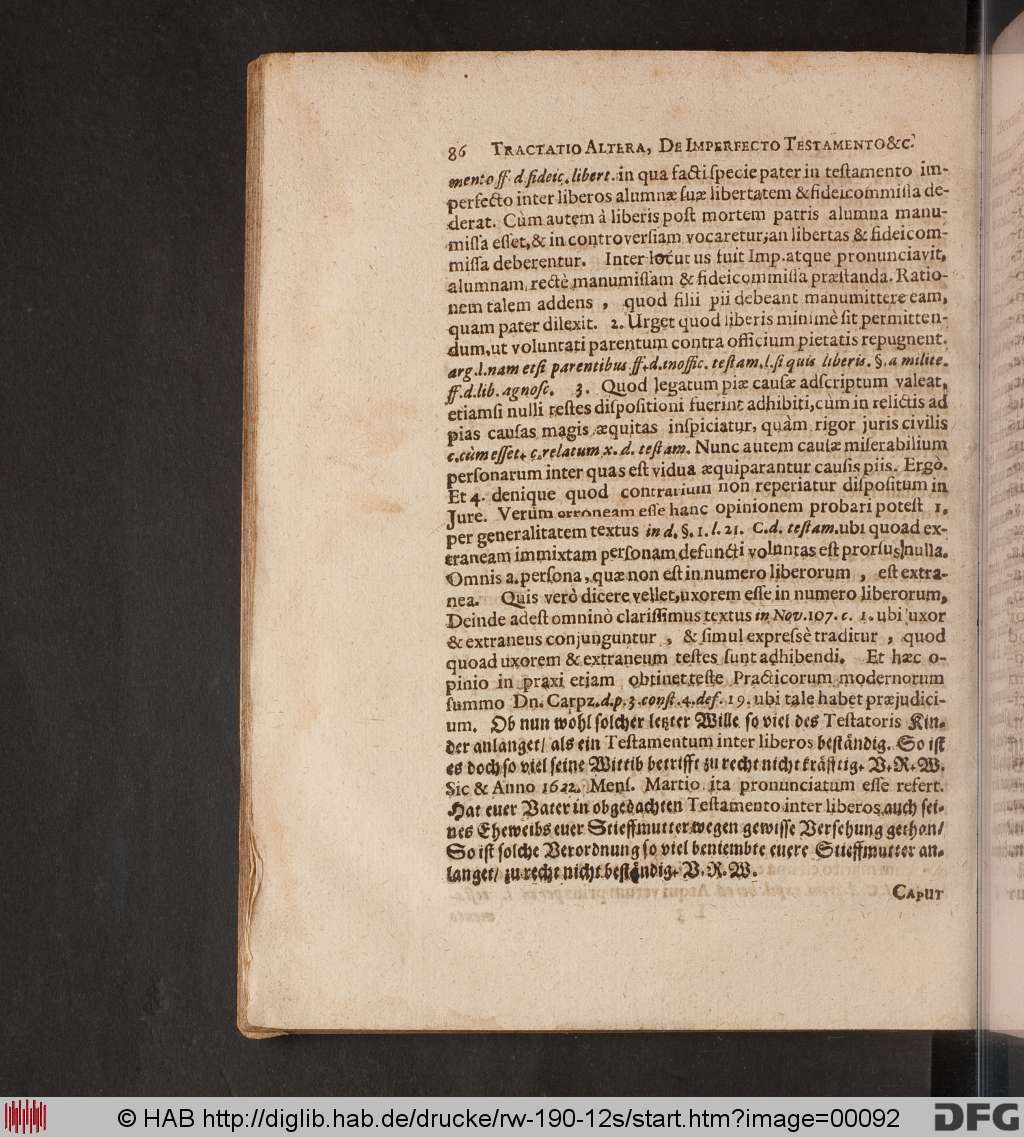 86 TRACTATIO ALTERA, DE IMPERFECTO TESTAMENTO &c.
mento ff. d. fideic. libert. in qua facti specie pater in testamento im-
perfecto inter liberos alumnæ suæ libertatem & fideicommissa de-
derat. Cùm autem à liberis post mortem patris alumna manu-
missa esset, & in controversiam vocaretur, an libertas & fideicom-
missa deberentur. Inter locutus fuit Imp. atque pronunciavit,
alumnam, rectè manumissam & fideicommissa præstanda. Ratio-
nem talem addens, quod filii pii debeant manumittere eam,
quam pater dilexit. 2. Urget quod liberis minimè sit permitten-
dum, ut voluntati parentum contra officium pietatis repugnent.
arg. l. nam etsi parentibus ff. d. inoffic. testam. l. si quis liberis. §. a milite.
ff. d. lib. agnosc. 3. Quod legatum piæ causæ adscriptum valeat,
etiamsi nulli testes dispositioni fuerint adhibiti, cùm in relictis ad
pias causas magis æquitas inspiciatur, quàm rigor juris civilis
c. cùm esset. c. relatum x. d. testam. Nunc autem causæ miserabilium
personarum inter quas est vidua æquiparantur causis piis. Ergo.
Et 4. denique quod contrarium non reperiatur dispositum in
Jure. Verùm erroneam esse hanc opinionem probari potest 1.
per generalitatem textus in d. §. 1. l. 21. C. d. testam. ubi quoad ex-
traneam immixtam personam defuncti voluntas est prorsus nulla.
Omnis a. persona, quæ non est in numero liberorum, est extra-
nea. Quis verò dicere vellet, uxorem esse in numero liberorum,
Deinde adest omninò clarissimus textus in Nov. 107. c. 1. ubi uxor
& extraneus conjunguntur, & simul expressè traditur, quod
quoad uxorem & extraneum testes sunt adhibendi. Et hæc o-
pinio in praxi etiam obtinet teste Practicorum modernorum
summo Dn. Carpz. d. p. 3. const. 4. def. 19. ubi tale habet præjudici-
um. Ob nun wohl solcher letzter Wille so viel des Testatoris Kin-
der anlanget/ als ein Testamentum inter liberos beständig. So ist
es doch so viel seine Wittib betrifft zu recht nicht kräfftig. V. R. W.
Sic & Anno 1622. Mens. Martio ita pronunciatum esse refert.
Hat euer Vater in obgedachten Testamento inter liberos auch sei-
nes Eheweibs euer Stieffmutter wegen gewisse Versehung gethon/
So ist solche Verordnung so viel beniembte euere Stieffmutter an-
langet/ zu recht nicht beständig. V. R. W.
CAPUT
© HAB http://diglib.hab.de/drucke/rw-190-12s/start.htm?image=00092
DFG